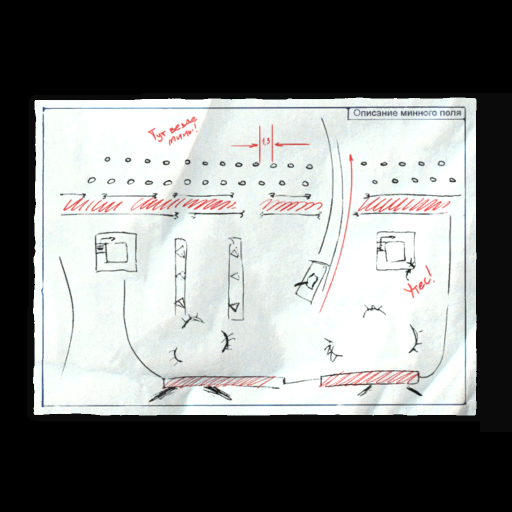 Описание минного поля
Тут везде
мины!
Утёс!